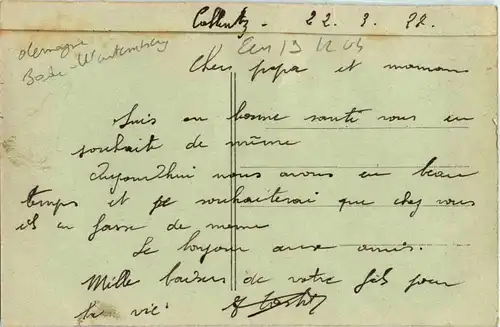 Coblentz - 22. 3. 22.
allemagne
Bade-Wurtemberg
Chers papa et maman
Suis en bonne santé vous en
souhaite de même
Aujourd'hui nous avons eu beau
temps et je souhaiterai que chez vous
il en fasse de meme
Le bonjour aux amis.
Mille baisers de votre fils pour
la vie.